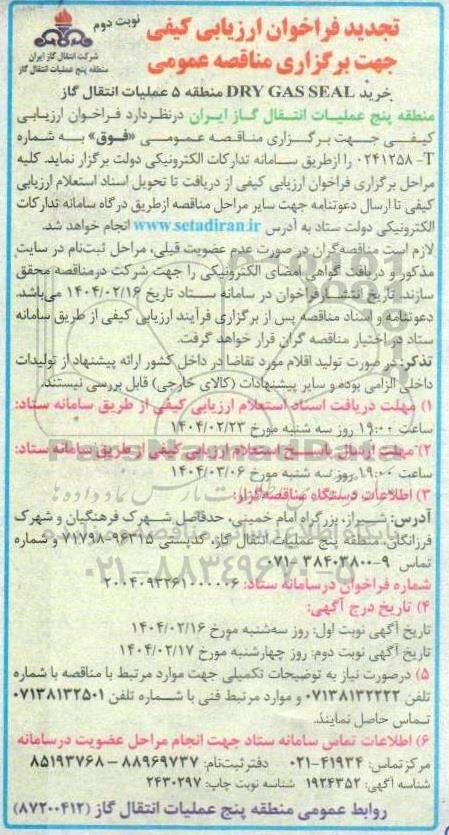 تجدید فراخوان ارزیابی کیفی
نوبت دوم
جهت برگزاری مناقصه عمومی
شرکت انتقال گاز ایران
منطقه پنج عملیات انتقال گاز
خرید DRY GAS SEAL منطقه ۵ عملیات انتقال گاز
منطقه پنج عملیات انتقال گاز ایران درنظردارد فراخوان ارزیابی
کیفی جهت برگزاری مناقصه عمومی «فوق» به شماره
T- ۰۲۴۱۲۵۸ را ازطریق سامانه تدارکات الکترونیکی دولت برگزار نماید. کلیه
مراحل برگزاری فراخوان ارزیابی کیفی از دریافت تا تحویل اسناد استعلام ارزیابی
کیفی تا ارسال دعوتنامه جهت سایر مراحل مناقصه ازطریق درگاه سامانه تدارکات
الکترونیکی دولت ستاد به آدرس www.setadiran.ir انجام خواهد شد.
لازم است مناقصه‌گران در صورت عدم عضویت قبلی، مراحل ثبت‌نام در سایت
مذکور و دریافت گواهی امضای الکترونیکی را جهت شرکت درمناقصه محقق
سازند. تاریخ انتشار فراخوان در سامانه ستاد تاریخ ۱۴۰۴/۰۲/۱۶ می‌باشد.
دعوتنامه و اسناد مناقصه پس از برگزاری فرآیند ارزیابی کیفی از طریق سامانه
ستاد در اختیار مناقصه گران قرار خواهد گرفت.
تذکر: در صورت تولید اقلام مورد تقاضا در داخل کشور ارائه پیشنهاد از تولیدات
داخلی الزامی بوده و سایر پیشنهادات (کالای خارجی) قابل بررسی نیستند.
۱) مهلت دریافت اسناد استعلام ارزیابی کیفی از طریق سامانه ستاد:
ساعت ۱۹:۰۰ روز سه شنبه مورخ ۱۴۰۴/۰۲/۲۳
۲) مهلت ارسال پاسخ استعلام ارزیابی کیفی از طریق سامانه ستاد:
ساعت ۱۹:۰۰ روز سه شنبه مورخ ۱۴۰۴/۰۳/۰۶
۳) اطلاعات دستگاه مناقصه‌گزار:
آدرس: شیراز، بزرگراه امام خمینی، حدفاصل شهرک فرهنگیان و شهرک
فرزانگان، منطقه پنج عملیات انتقال گاز، کدپستی ۹۶۳۱۵-۷۱۷۹۸ و شماره
تماس ۹-۳۸۴۰۳۸۰۰-۰۷۱
۰۲۱-۸۸۳۴۹۶۷۰-۵
شماره فراخوان درسامانه ستاد: ۲۰۰۴۰۹۳۲۶۱۰۰۰۰۰۶
۴) تاریخ درج آگهی:
تاریخ آگهی نوبت اول: روز سه‌شنبه مورخ ۱۴۰۴/۰۲/۱۶
تاریخ آگهی نوبت دوم: روز چهارشنبه مورخ ۱۴۰۴/۰۲/۱۷
۵) درصورت نیاز به توضیحات تکمیلی جهت موارد مرتبط با مناقصه با شماره
تلفن ۰۷۱۳۸۱۳۲۲۲۲ و موارد مرتبط فنی با شماره تلفن ۰۷۱۳۸۱۳۲۵۰۱
تماس حاصل نمایند.
۶) اطلاعات تماس سامانه ستاد جهت انجام مراحل عضویت درسامانه
مرکز تماس: ۴۱۹۳۴-۰۲۱ دفتر ثبت‌نام: ۸۸۹۶۹۷۳۷ – ۸۵۱۹۳۷۶۸
شناسه آگهی: ۱۹۲۴۳۵۲ شناسه نوبت چاپ: ۲۴۳۰۲۹۷
روابط عمومی منطقه پنج عملیات انتقال گاز (۸۷۲۰۰۴۱۲)